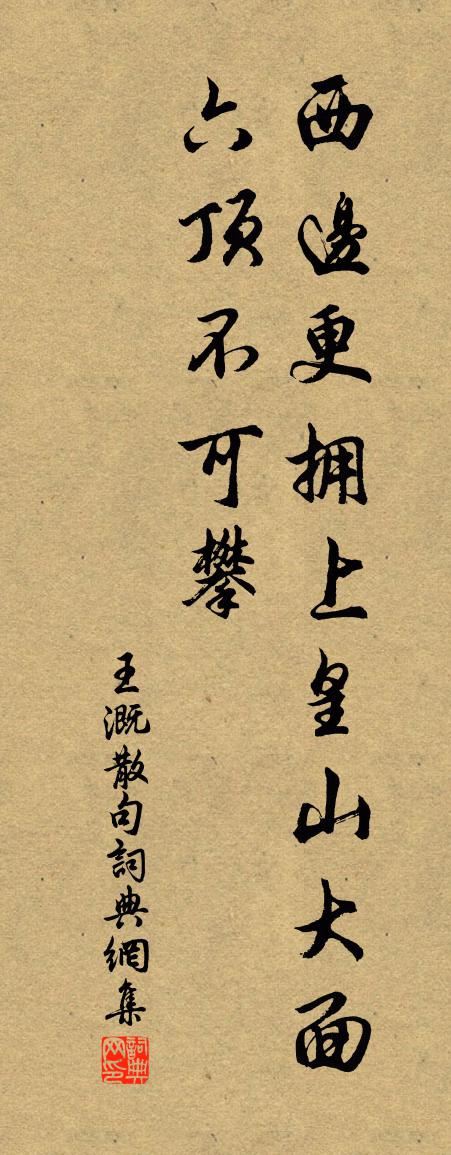 西邊更拥上皇山大面
六顶不可攀
王溉散句詞典網集
詞典
网印